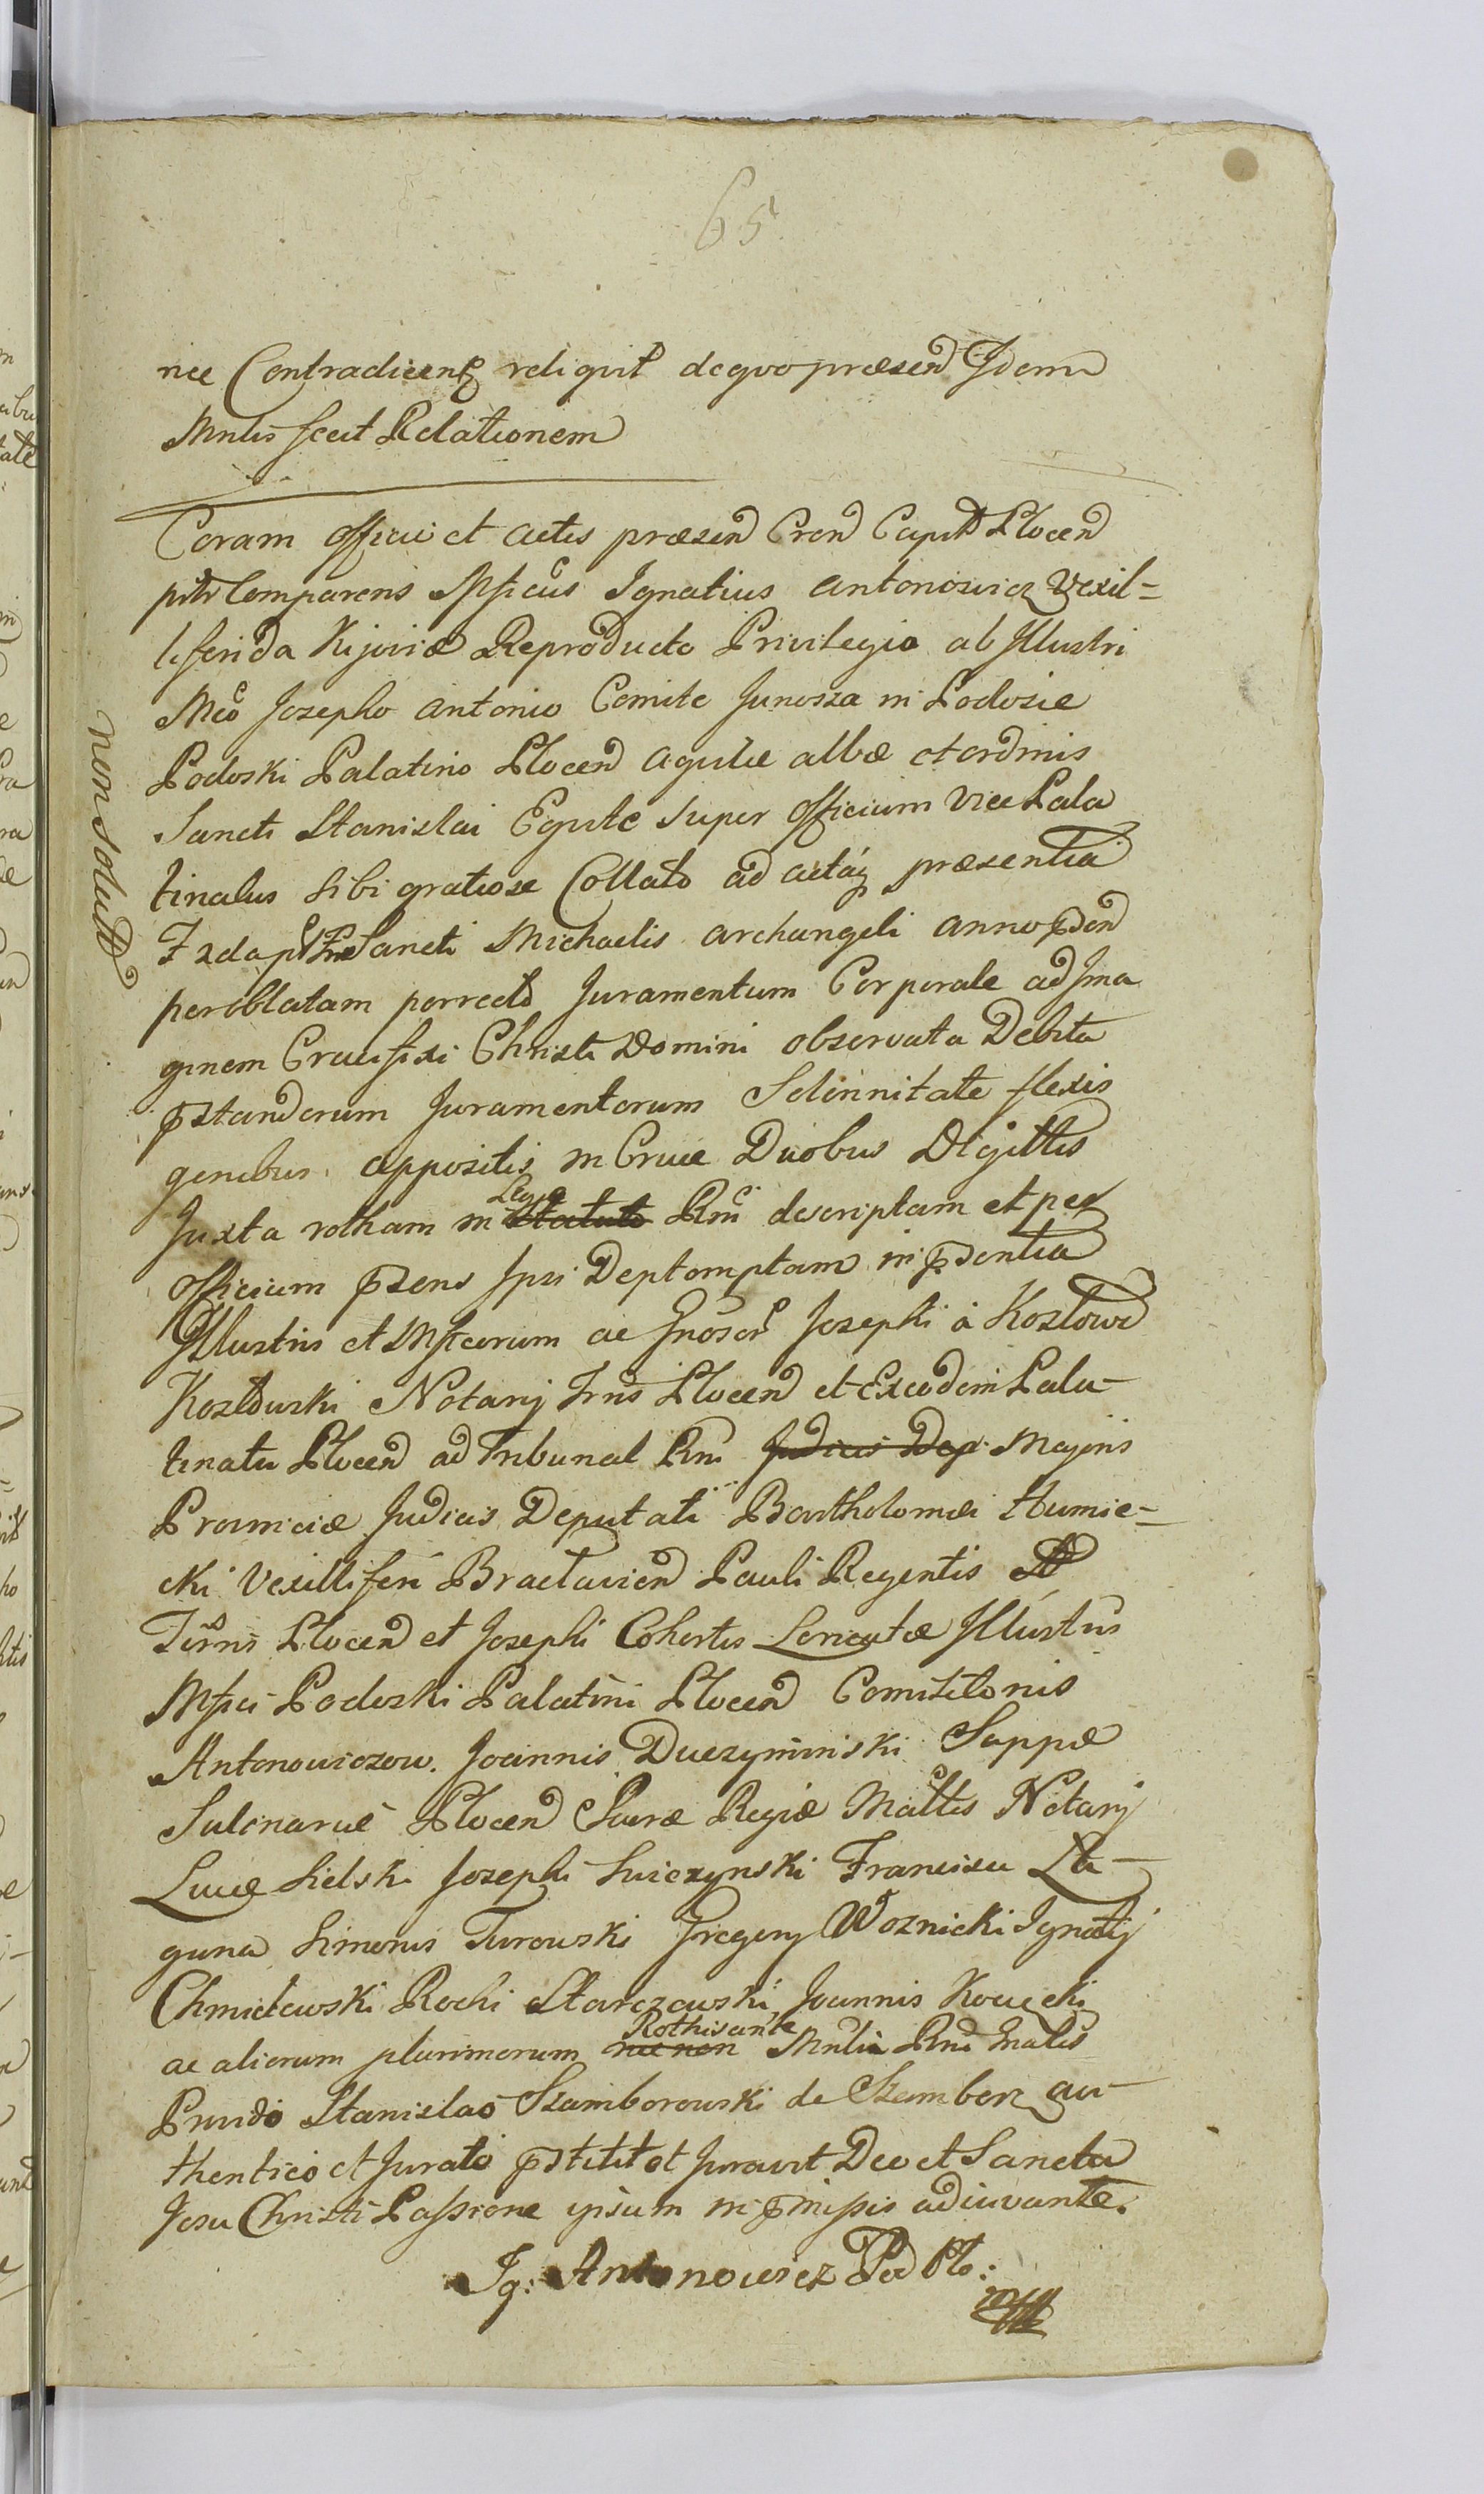 65
nec Contradicent religit de quo praesend Idem
Mnlis fecit Relationem
Coram officio et actis praesend Cren Capit Plocen
psntr Comparens Mficus Ignatius Antonowicz Vexil=
liferida Kijoviae Reproducto Privilegio ab Illustri
Mco Josepho Antonio Comite Junosza in Podosie
Podoski Palatino Plocen aquilae albae et ordinis
Sancti Stanislai Equite super officium Vice Pala
tinatus sibi gratiose Collato ad acta praesentia
Sancti Michaelis archangeli anno psen
per oblatam porrecto Juramentum Corporale ad Ima
ginem Crucifixi Christi Domini observata Debita
pstandorum Juramentorum Solennitate flexis
genibus appositis in Cruce Duobus Digittis
Juxta rotham in Lege Statuto Rni descriptam et per
officium psens Ipsi Deptomptam in psentia
Illustris et Mficorum ac Gnosor Josephi à Kozłowo
Kozłowski Notarij Trris Plocen et Ex eodem Pala-
tinatu Plocen ad Tribunal Rni Judicis Dep. Majoris
Provinciae Judicis Deputati Bartholomaei Humie=
cki Vexilliferi Braclavien Pauli Regentis
Terris Plocen et Josephi Cohortis Loricatae Illustris
Mfici Podoski Palatini Plocen Comitilonis
Antonowiczow. Joannis Duczyminski Suppae
Salinariae Plocen Sacrae Regiae Mattis Notarij
Lucae Sielski Josephi Swiezynski Francisci La-
guna Simonis Turowski Gregorij Woznicki Ignatij
Chmielewski Rochi Starczewski Joannis Kowecki
ac aliorum plurimorum nec non Rothisante Mnlis Rni Gnalis
Prvido Stanislao Szamborowski de Szemborz au-
thentico et Jurato pstitit et Juravit Deo et Sancta
Jesu Christi Passione ipsum in pmissis adiuvante.
Ig: Antonowicz Pod Pło:
non solutt